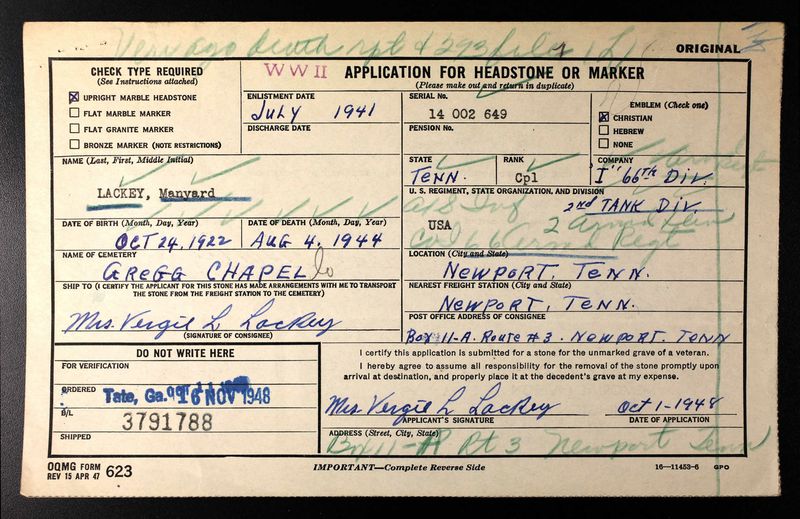 Very ago death rpt & 293 file
ORIGINAL
CHECK TYPE REQUIRED
(See Instructions attached)
UPRIGHT MARBLE HEADSTONE
FLAT MARBLE MARKER
FLAT GRANITE MARKER
BRONZE MARKER (NOTE RESTRICTIONS)
WWII APPLICATION FOR HEADSTONE OR MARKER
(Please make out and return in duplicate)
ENLISTMENT DATE
July 1941
DISCHARGE DATE
SERIAL No.
14 002 649
PENSION No.
EMBLEM (Check one)
CHRISTIAN
HEBREW
NONE
NAME (Last, First, Middle Initial)
LACKEY, Manyard
STATE
TENN.
RANK
Cpl
COMPANY
"I" 66TH DIV.
U. S. REGIMENT, STATE ORGANIZATION, AND DIVISION
2nd TANK DIV.
USA
DATE OF BIRTH (Month, Day, Year)
OCT 24, 1922
DATE OF DEATH (Month, Day, Year)
AUG 4, 1944
NAME OF CEMETERY
GREGG CHAPEL
LOCATION (City and State)
NEWPORT, TENN.
SHIP TO (I CERTIFY THE APPLICANT FOR THIS STONE HAS MADE ARRANGEMENTS WITH ME TO TRANSPORT
THE STONE FROM THE FREIGHT STATION TO THE CEMETERY)
Mrs. Vergie L Lackey
(SIGNATURE OF CONSIGNEE)
NEAREST FREIGHT STATION (City and State)
NEWPORT, TENN.
POST OFFICE ADDRESS OF CONSIGNEE
Box 11-A. Route #3. NEWPORT. TENN
DO NOT WRITE HERE
FOR VERIFICATION
ORDERED
Tate, Ga. 16 NOV 1948
B/L
3791788
SHIPPED
I certify this application is submitted for a stone for the unmarked grave of a veteran.
I hereby agree to assume all responsibility for the removal of the stone promptly upon
arrival at destination, and properly place it at the decedent's grave at my expense.
Mrs. Vergie L. Lackey
Oct 1-1948
APPLICANT'S SIGNATURE
DATE OF APPLICATION
ADDRESS (Street, City, State)
Box 11-A Rt 3 Newport Tenn
OQMG FORM
REV 15 APR 47 623
IMPORTANT—Complete Reverse Side
16—11453-6 GPO